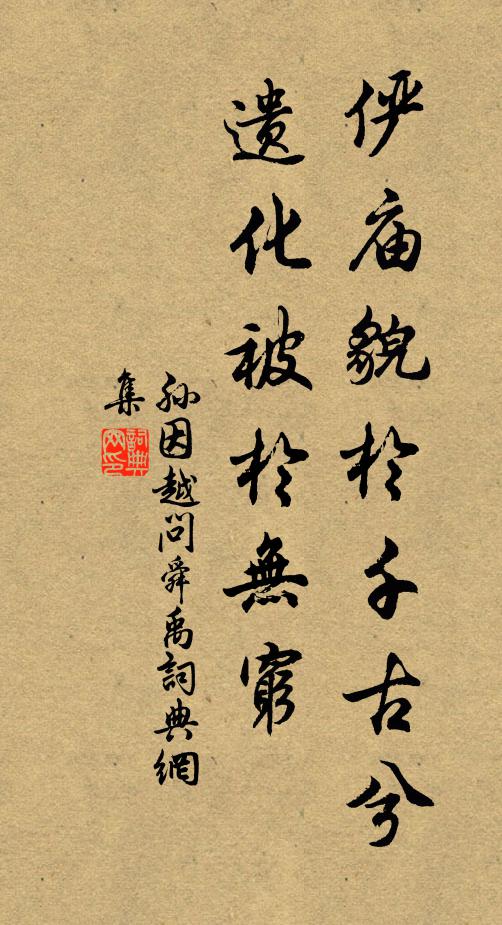 俨庙貌於千古兮
遗化被於無窮
孫因越問舜禹詞典網
集
詞典網印